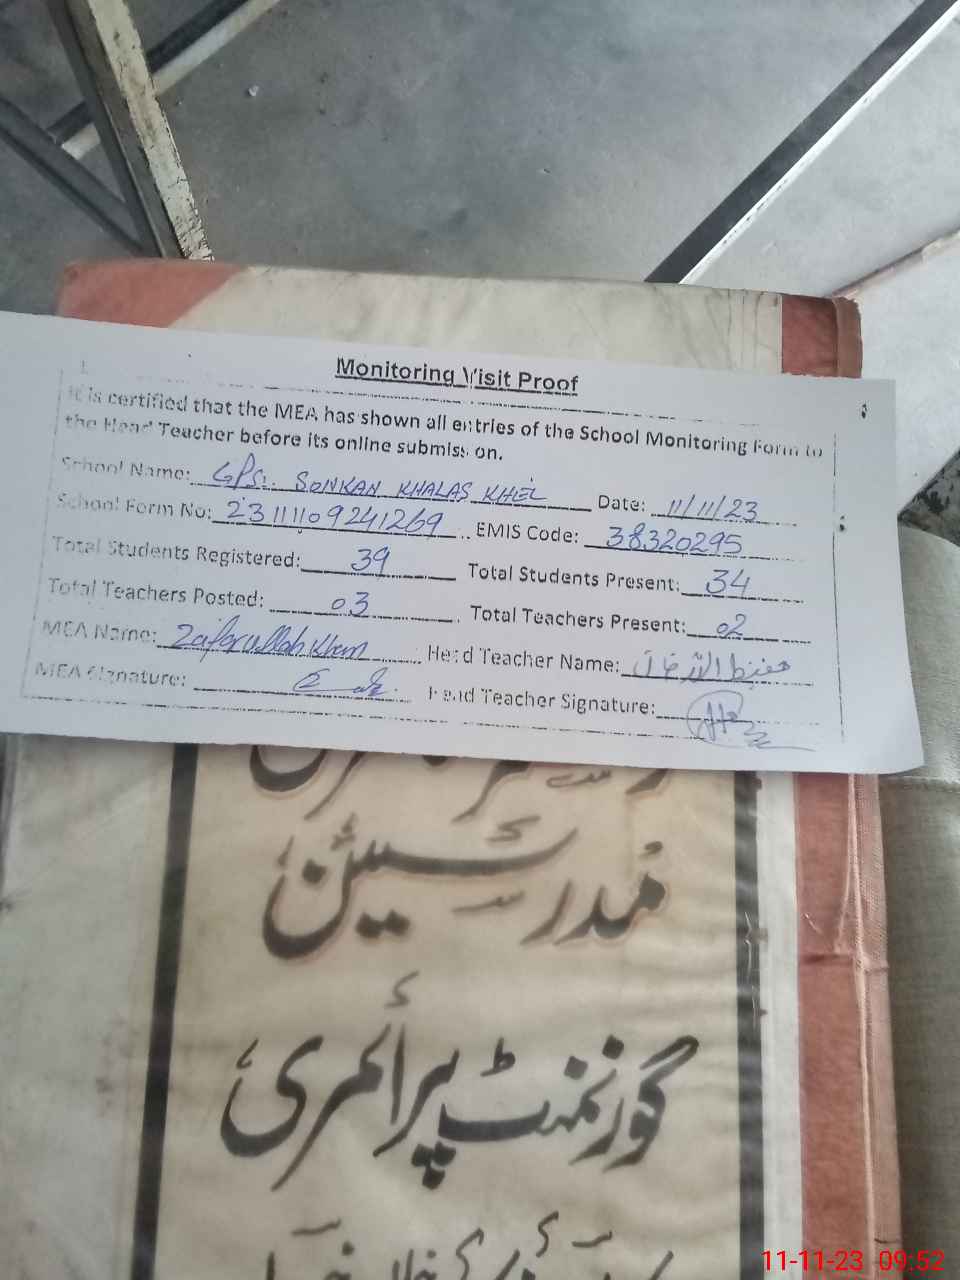 Monitoring Visit Proof
It is certified that the MEA has shown all entries of the School Monitoring Form to
the Head Teacher before its online submission.
School Name: GPS:. SONKAN KHALAS KHEL Date: 11/11/23
School Form No: 23111109241269 EMIS Code: 38320295
Total Students Registered: 39 Total Students Present: 34
Total Teachers Posted: 03 Total Teachers Present: 02
MEA Name: Zaifarullah Khan Head Teacher Name: حفیظ اللہ خان
MEA Signature: Head Teacher Signature:
مدرسین
گورنمنٹ پرائمری
11-11-23 09:52